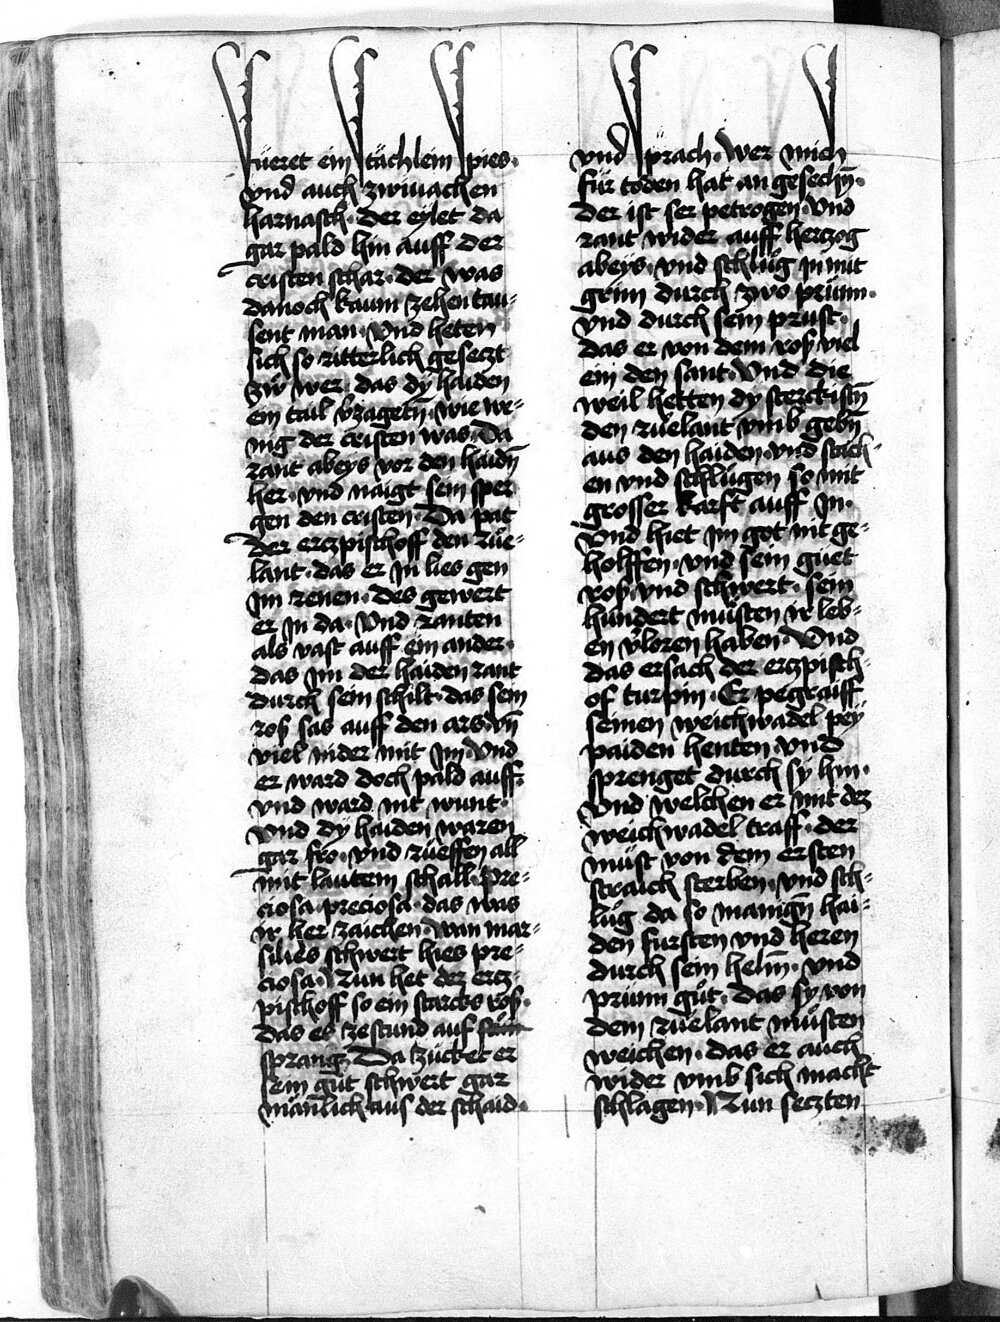 füeret ein stächlein spies·
vnd auch zwiuachen
harnasch· der eylet da
gar pald hin auff der
cristen schar· der was
danoch kaum zehen tau⸗
sent man· Vnd heten
sich so ritterlich geseczt
zů wer· das dy haiden
ein tail v̄zagetn̄· wie we⸗
nig der cristen was· Da
rant abeys vor den haidn̄
her· vnd naigt sein sper
gen den cristen· Da pat
der erczpischoff den růe⸗
lant· das er in lies gen
im renen· des gewert
er in da· Vnd ranten
als vast auff ein ander·
das im der haiden rant
durch sein schilt· das sein
roß sas auff den ars· vn̄
viel nider mit im· Vnd
er ward doch pald auff·
vnd ward nit wunt·
Vnd dy haiden waren
gar fro· vnd rüeffen all
mit lautem schall· Pre⸗
ciosa preciosa· das was
ir her zaichen· wan mar⸗
silies schwert hies pre⸗
ciosa· Nun het der ercz⸗
pischoff so ein starcks roß·
das es zestund auf
sprang· Da zucket er
sein gůt schwert gar
mänlich aus der schaid·
vnd sprach· Wer mich
für toden hat an gesechn̄·
der ist ser petrogen· Vnd
rant wider auff herczog
abeys· vnd schlůg in mit
grim durch zwo prünn·
Vnd durch sein prust·
das er von dem roß viel
ein den sant· Vnd die
weil hetten dy sterckistn̄
den růelant vmb gebn̄
aus den haiden· vnd stach⸗
en vnd schlůgen so mit
grosser karft auff in·
Vnd hiet im got nit ge⸗
holffen· vnd sein guet
roß vnd schwert· sein
hundert můsten ir leb⸗
en v̄loren haben· Vnd
das ersach der erczpisch⸗
of turpin· Er pegraiff
seinen weichwadel pey
paiden henten vnd
sprenget durch sy hin·
Vnd welchen er mit der
weichwadel traff· der
můst von dem ersten
straich sterben· vnd sch⸗
lůg da so manign̄ hai⸗
den fürsten vnd heren
durch sein helm̄· vnd
prünn gůt· das sy von
dem růelant můsten
weichen· das er auch
wider vmb sich macht
schlagen· Nun seczten